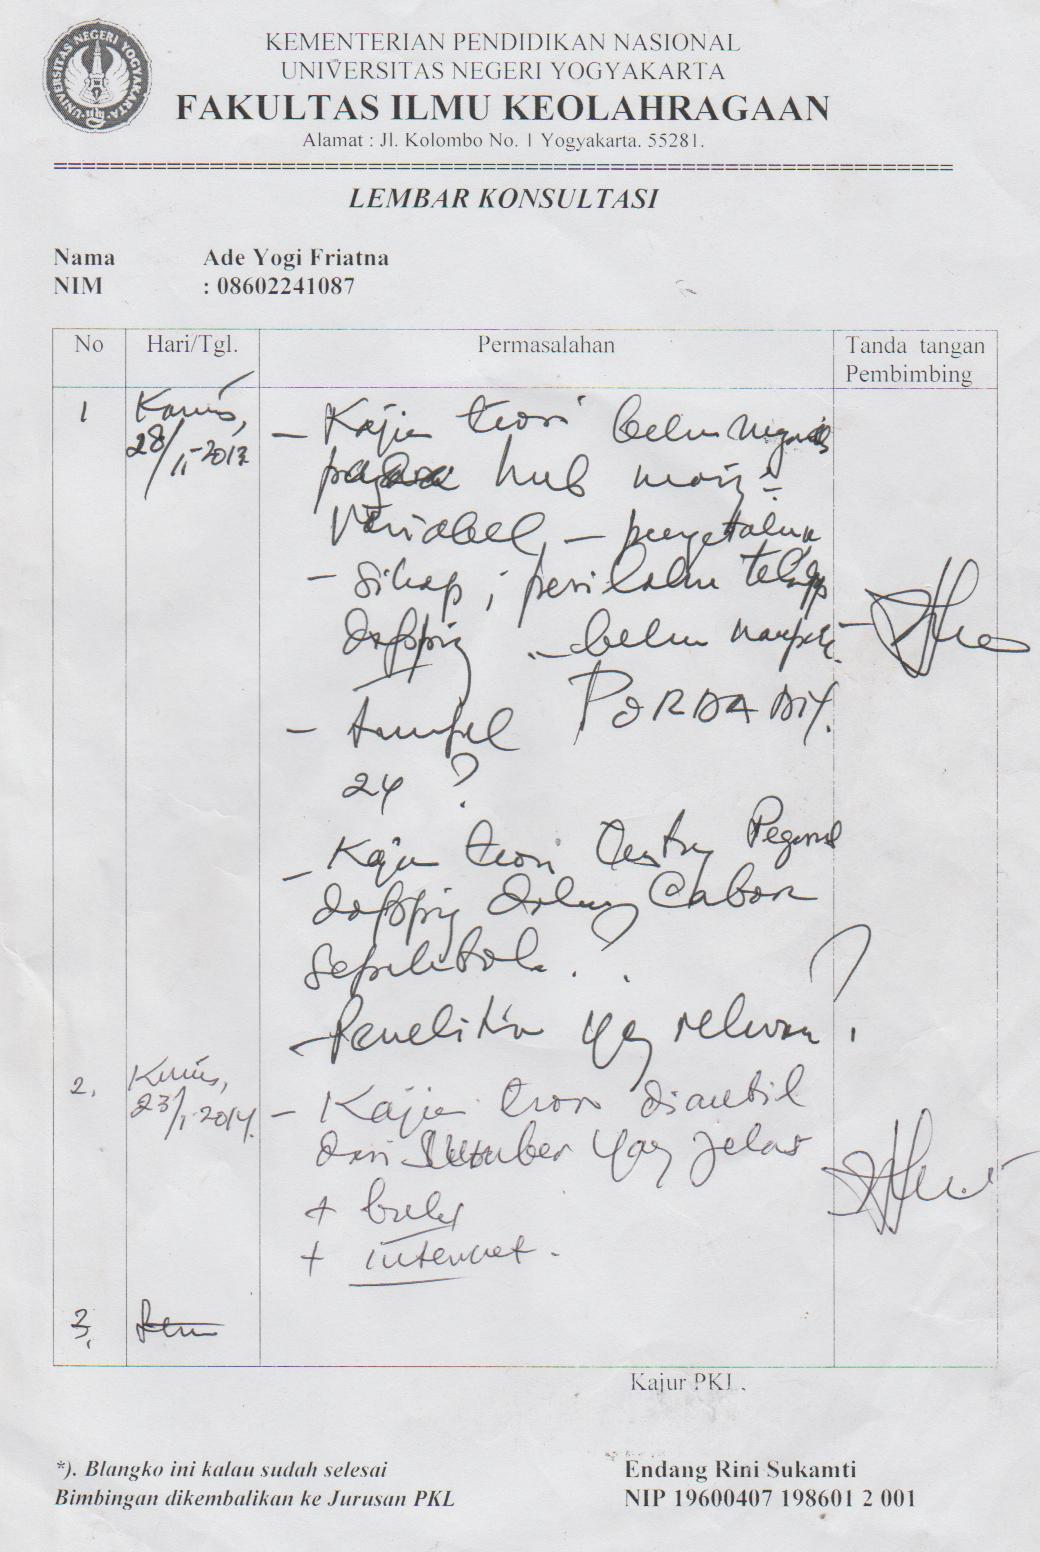 UNIVERSITAS NEGERI YOGYAKARTA
KEMENTERIAN PENDIDIKAN NASIONAL
UNIVERSITAS NEGERI YOGYAKARTA
FAKULTAS ILMU KEOLAHRAGAAN
Alamat : Jl. Kolombo No. 1 Yogyakarta. 55281.
LEMBAR KONSULTASI
Nama Ade Yogi Friatna
NIM : 08602241087
No Hari/Tgl. Permasalahan Tanda tangan
Pembimbing
1 Kamis,
28/11-2013 - Kajian teori belum
hub
Variabel, - pengetahuan
- sikap ; perilaku
dopping - belum
- PORDA DIY.
24 ?
- Kajian teori
dopping dalam Cabor
sepakbola . ?
- Penelitian yg relevan ?
2. Kamis,
23/1-2014. - Kajian teori diambil
dari Sumber yang jelas
+ buku
+ internet.
3.
Kajur PKL,
*). Blangko ini kalau sudah selesai
Bimbingan dikembalikan ke Jurusan PKL
Endang Rini Sukamti
NIP 19600407 198601 2 001